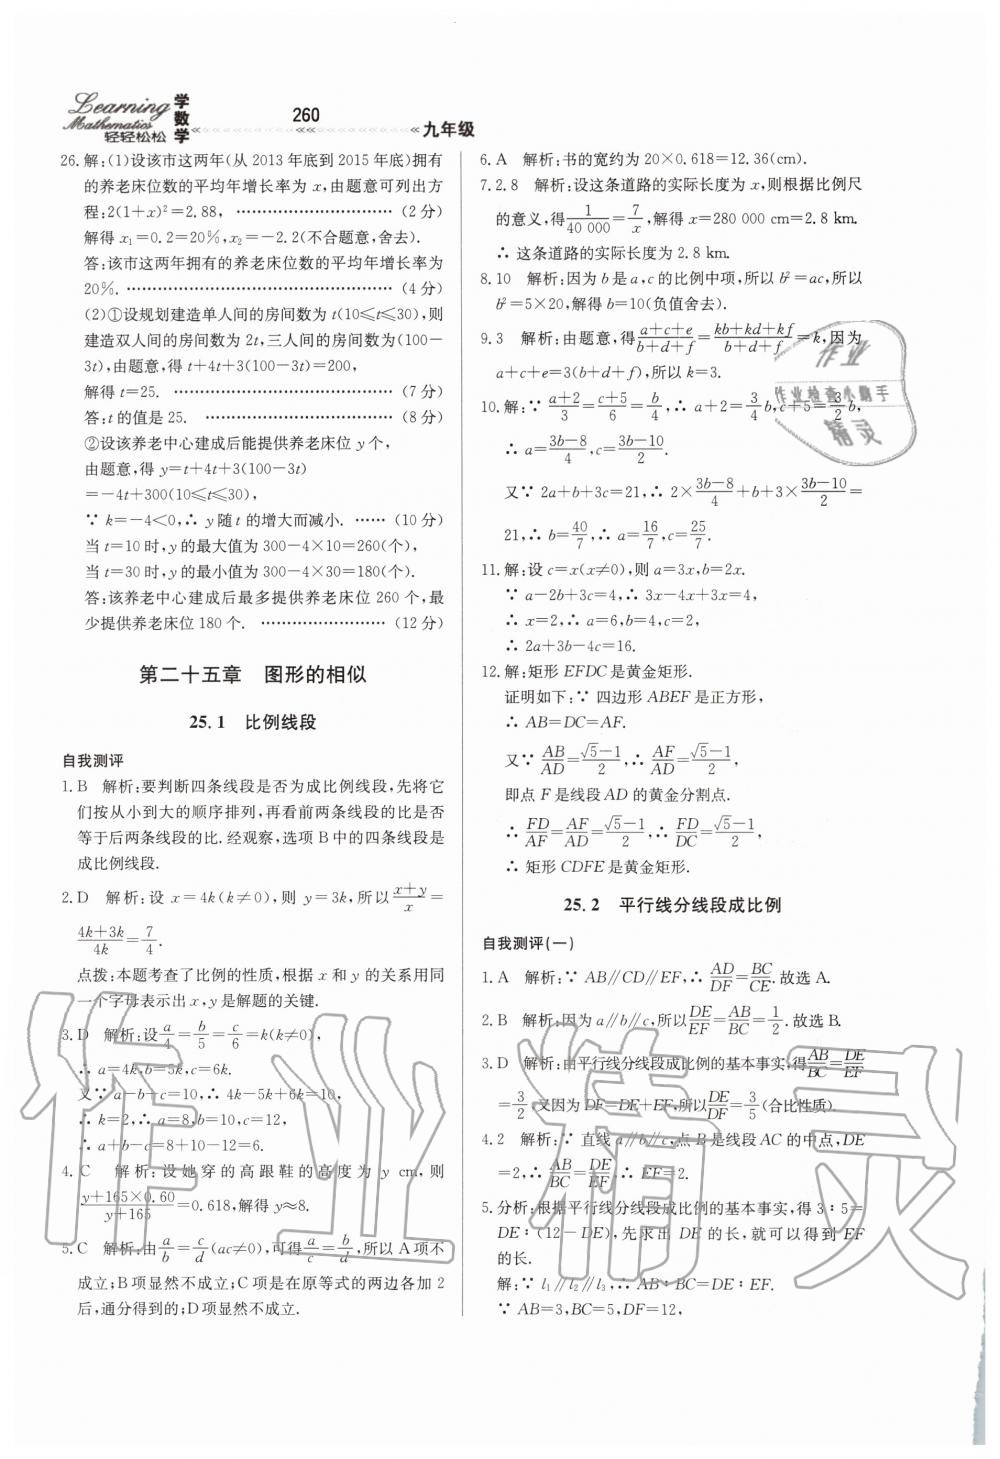 Learning
Mathematics
轻轻松松
学数学
260
九年级
26. 解:(1)设该市这两年(从 2013 年底到 2015 年底)拥有
的养老床位数的平均年增长率为 x,由题意可列出方
程:2(1+x)²=2.88, ………………………… (2 分)
解得 x₁=0.2=20%,x₂=-2.2(不合题意,舍去).
答:该市这两年拥有的养老床位数的平均年增长率为
20%. …………………………………………… (4 分)
(2)①设规划建造单人间的房间数为 t(10≤t≤30),则
建造双人间的房间数为 2t,三人间的房间数为(100-
3t),由题意,得 t+4t+3(100-3t)=200,
解得 t=25. …………………………………… (7 分)
答:t 的值是 25. ……………………………… (8 分)
②设该养老中心建成后能提供养老床位 y 个,
由题意,得 y=t+4t+3(100-3t)
=-4t+300(10≤t≤30),
∵ k=-4<0,∴ y 随 t 的增大而减小. …… (10 分)
当 t=10 时,y 的最大值为 300-4×10=260(个),
当 t=30 时,y 的最小值为 300-4×30=180(个).
答:该养老中心建成后最多提供养老床位 260 个,最
少提供养老床位 180 个. …………………… (12 分)
第二十五章 图形的相似
25.1 比例线段
自我测评
1. B 解析:要判断四条线段是否为成比例线段,先将它
们按从小到大的顺序排列,再看前两条线段的比是否
等于后两条线段的比.经观察,选项 B 中的四条线段是
成比例线段.
2. D 解析:设 x=4k(k≠0),则 y=3k,所以 (x+y)/x =
(4k+3k)/4k = 7/4.
点拨:本题考查了比例的性质,根据 x 和 y 的关系用同
一个字母表示出 x,y 是解题的关键.
3. D 解析:设 a/4 = b/5 = c/6 =k(k≠0),
∴ a=4k,b=5k,c=6k.
又∵ a-b+c=10,∴ 4k-5k+6k=10,
∴ k=2,∴ a=8,b=10,c=12,
∴ a+b-c=8+10-12=6.
4. C 解析:设她穿的高跟鞋的高度为 y cm,则
(y+165×0.60)/(y+165) =0.618,解得 y≈8.
5. C 解析:由 a/b = c/d (ac≠0),可得 a/c = b/d,所以 A 项不
成立;B 项显然不成立;C 项是在原等式的两边各加 2
后,通分得到的;D 项显然不成立.
6. A 解析:书的宽约为 20×0.618=12.36(cm).
7. 2.8 解析:设这条道路的实际长度为 x,则根据比例尺
的意义,得 1/40 000 = 7/x,解得 x=280 000 cm=2.8 km.
∴ 这条道路的实际长度为 2.8 km.
8. 10 解析:因为 b 是 a,c 的比例中项,所以 b²=ac,所以
b²=5×20,解得 b=10(负值舍去).
9. 3 解析:由题意,得 (a+c+e)/(b+d+f) = (kb+kd+kf)/(b+d+f) =k,因为
a+c+e=3(b+d+f),所以 k=3.
10. 解:∵ (a+2)/3 = (c+5)/6 = b/4,∴ a+2= 3/4 b,c+5= 3/2 b,
∴ a= (3b-8)/4,c= (3b-10)/2.
又∵ 2a+b+3c=21,∴ 2× (3b-8)/4 +b+3× (3b-10)/2 =
21,∴ b= 40/7,∴ a= 16/7,c= 25/7.
11. 解:设 c=x(x≠0),则 a=3x,b=2x.
∵ a-2b+3c=4,∴ 3x-4x+3x=4,
∴ x=2,∴ a=6,b=4,c=2,
∴ 2a+3b-4c=16.
12. 解:矩形 EFDC 是黄金矩形.
证明如下:∵ 四边形 ABEF 是正方形,
∴ AB=DC=AF.
又∵ AB/AD = (√5-1)/2,∴ AF/AD = (√5-1)/2,
即点 F 是线段 AD 的黄金分割点.
∴ FD/AF = AF/AD = (√5-1)/2,∴ FD/DC = (√5-1)/2,
∴ 矩形 CDFE 是黄金矩形.
25.2 平行线分线段成比例
自我测评(一)
1. A 解析:∵ AB∥CD∥EF,∴ AD/DF = BC/CE.故选 A.
2. B 解析:因为 a∥b∥c,所以 DE/EF = AB/BC = 1/2.故选 B.
3. D 解析:由平行线分线段成比例的基本事实,得 AB/BC = DE/EF
= 3/2,又因为 DF=DE+EF,所以 DE/DF = 3/5 (合比性质).
4. 2 解析:∵ 直线 a∥b∥c,点 B 是线段 AC 的中点,DE
=2,∴ AB/BC = DE/EF,∴ EF=2.
5. 分析:根据平行线分线段成比例的基本事实,得 3∶5=
DE∶(12-DE),先求出 DE 的长,就可以得到 EF
的长.
解:∵ l₁∥l₂∥l₃,∴ AB∶BC=DE∶EF.
∵ AB=3,BC=5,DF=12,
作业
作业检查小助手
精灵
作业精灵